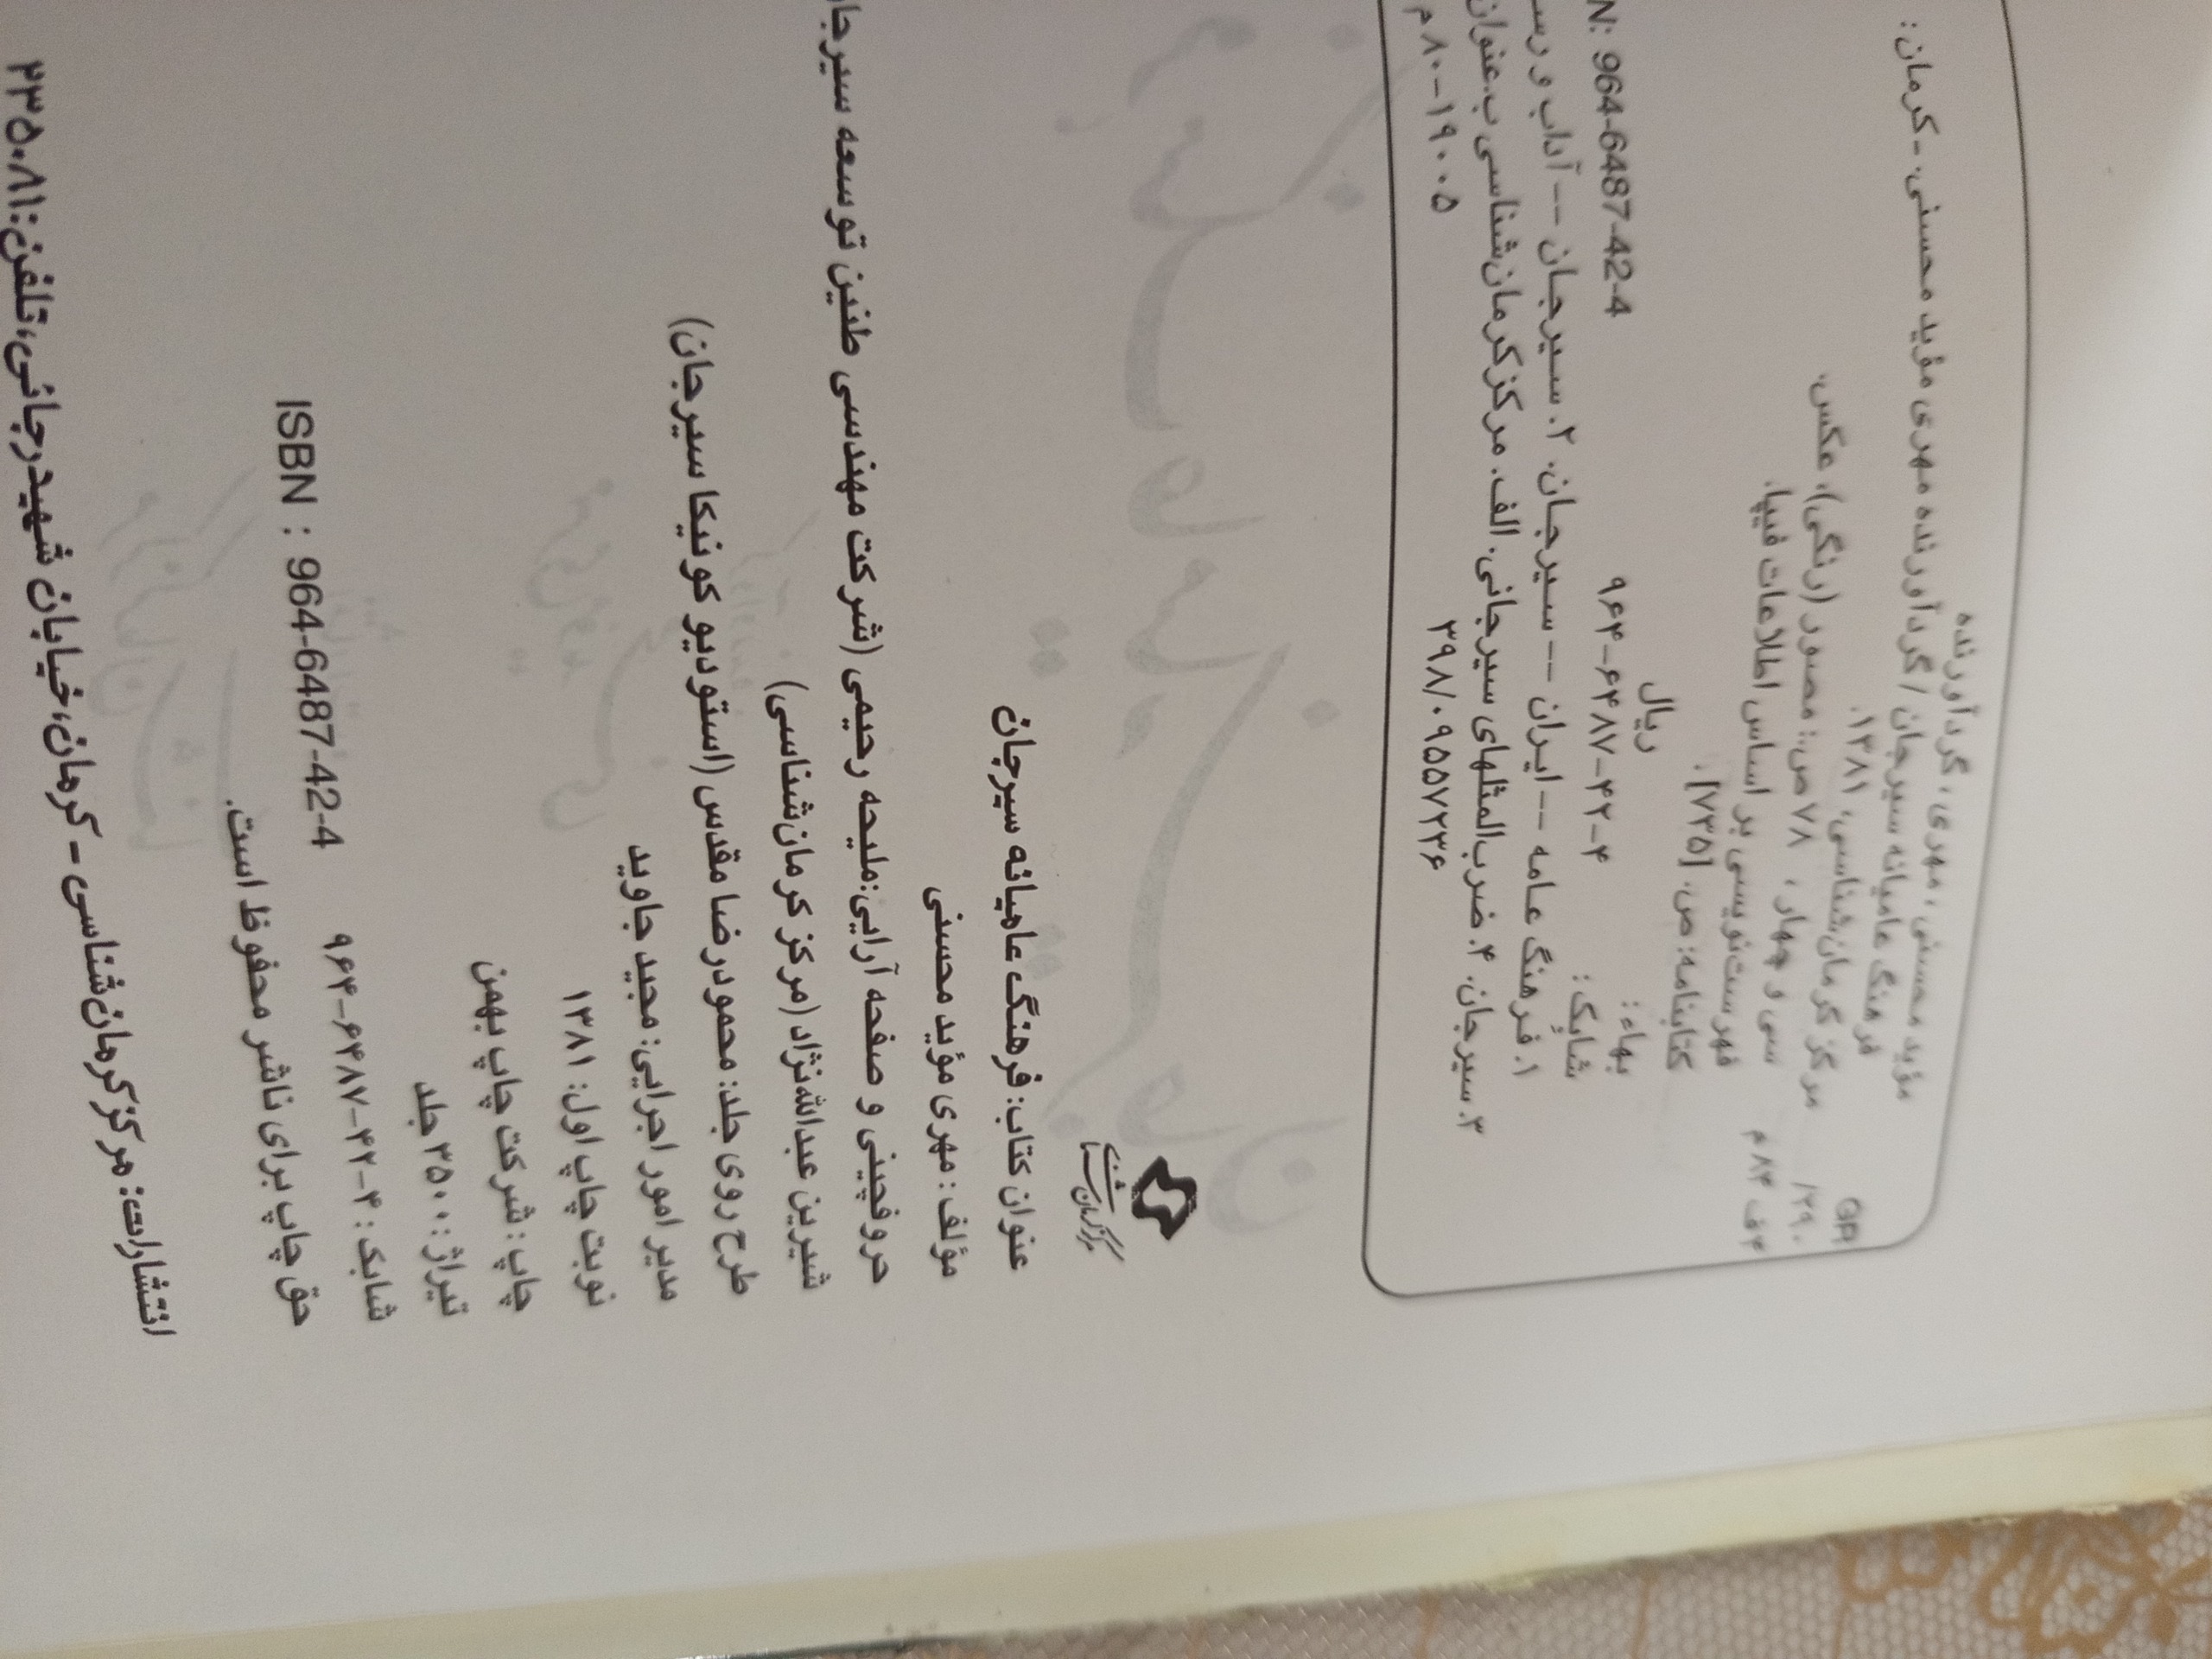 مؤید محسنی، مهری، گردآورنده
فرهنگ عامیانه سیرجان / گردآورنده مهری مؤید محسنی. - کرمان:
مرکز کرمان‌شناسی، ۱۳۸۱.
سی و چهار، ۷۸ ص.: مصور (رنگی)، عکس.
فهرست‌نویسی بر اساس اطلاعات فیپا.
کتابنامه: ص. [۷۳۵].
بهاء: ریال
شابک: ۹۶۴-۶۴۸۷-۴۲-۴ N: 964-6487-42-4
۱. فرهنگ عامه -- ایران -- سیرجان. ۲. سیرجان -- آداب و رسـ
۳. سیرجان. ۴. ضرب‌المثلهای سیرجانی. الف. مرکز کرمان‌شناسی ب. عنوان
۳۹۸/۰۹۵۵۷۲۳۶ ۸۰-۱۹۰۰۵ م
GR
۲۹۰/
۴ف۸۳م
مرکز کرمان‌شناسی
عنوان کتاب: فرهنگ عامیانه سیرجان
مؤلف: مهری مؤید محسنی
حروفچینی و صفحه آرایی: ملیحه رحیمی (شرکت مهندسی طنین توسعه سیرجا
شیرین عبدالله‌نژاد (مرکز کرمان‌شناسی)
طرح روی جلد: محمودرضا مقدس (استودیو کونیکا سیرجان)
مدیر امور اجرایی: مجید جاوید
نوبت چاپ اول: ۱۳۸۱
چاپ: شرکت چاپ بهمن
تیراژ: ۳۵۰۰ جلد
شابک: ۴-۴۲-۶۴۸۷-۹۶۴ ISBN : 964-6487-42-4
حق چاپ برای ناشر محفوظ است.
انتشارات: مرکز کرمان‌شناسی - کرمان، خیابان شهید رجائی، تلفن: ۲۳۵۰۸۱